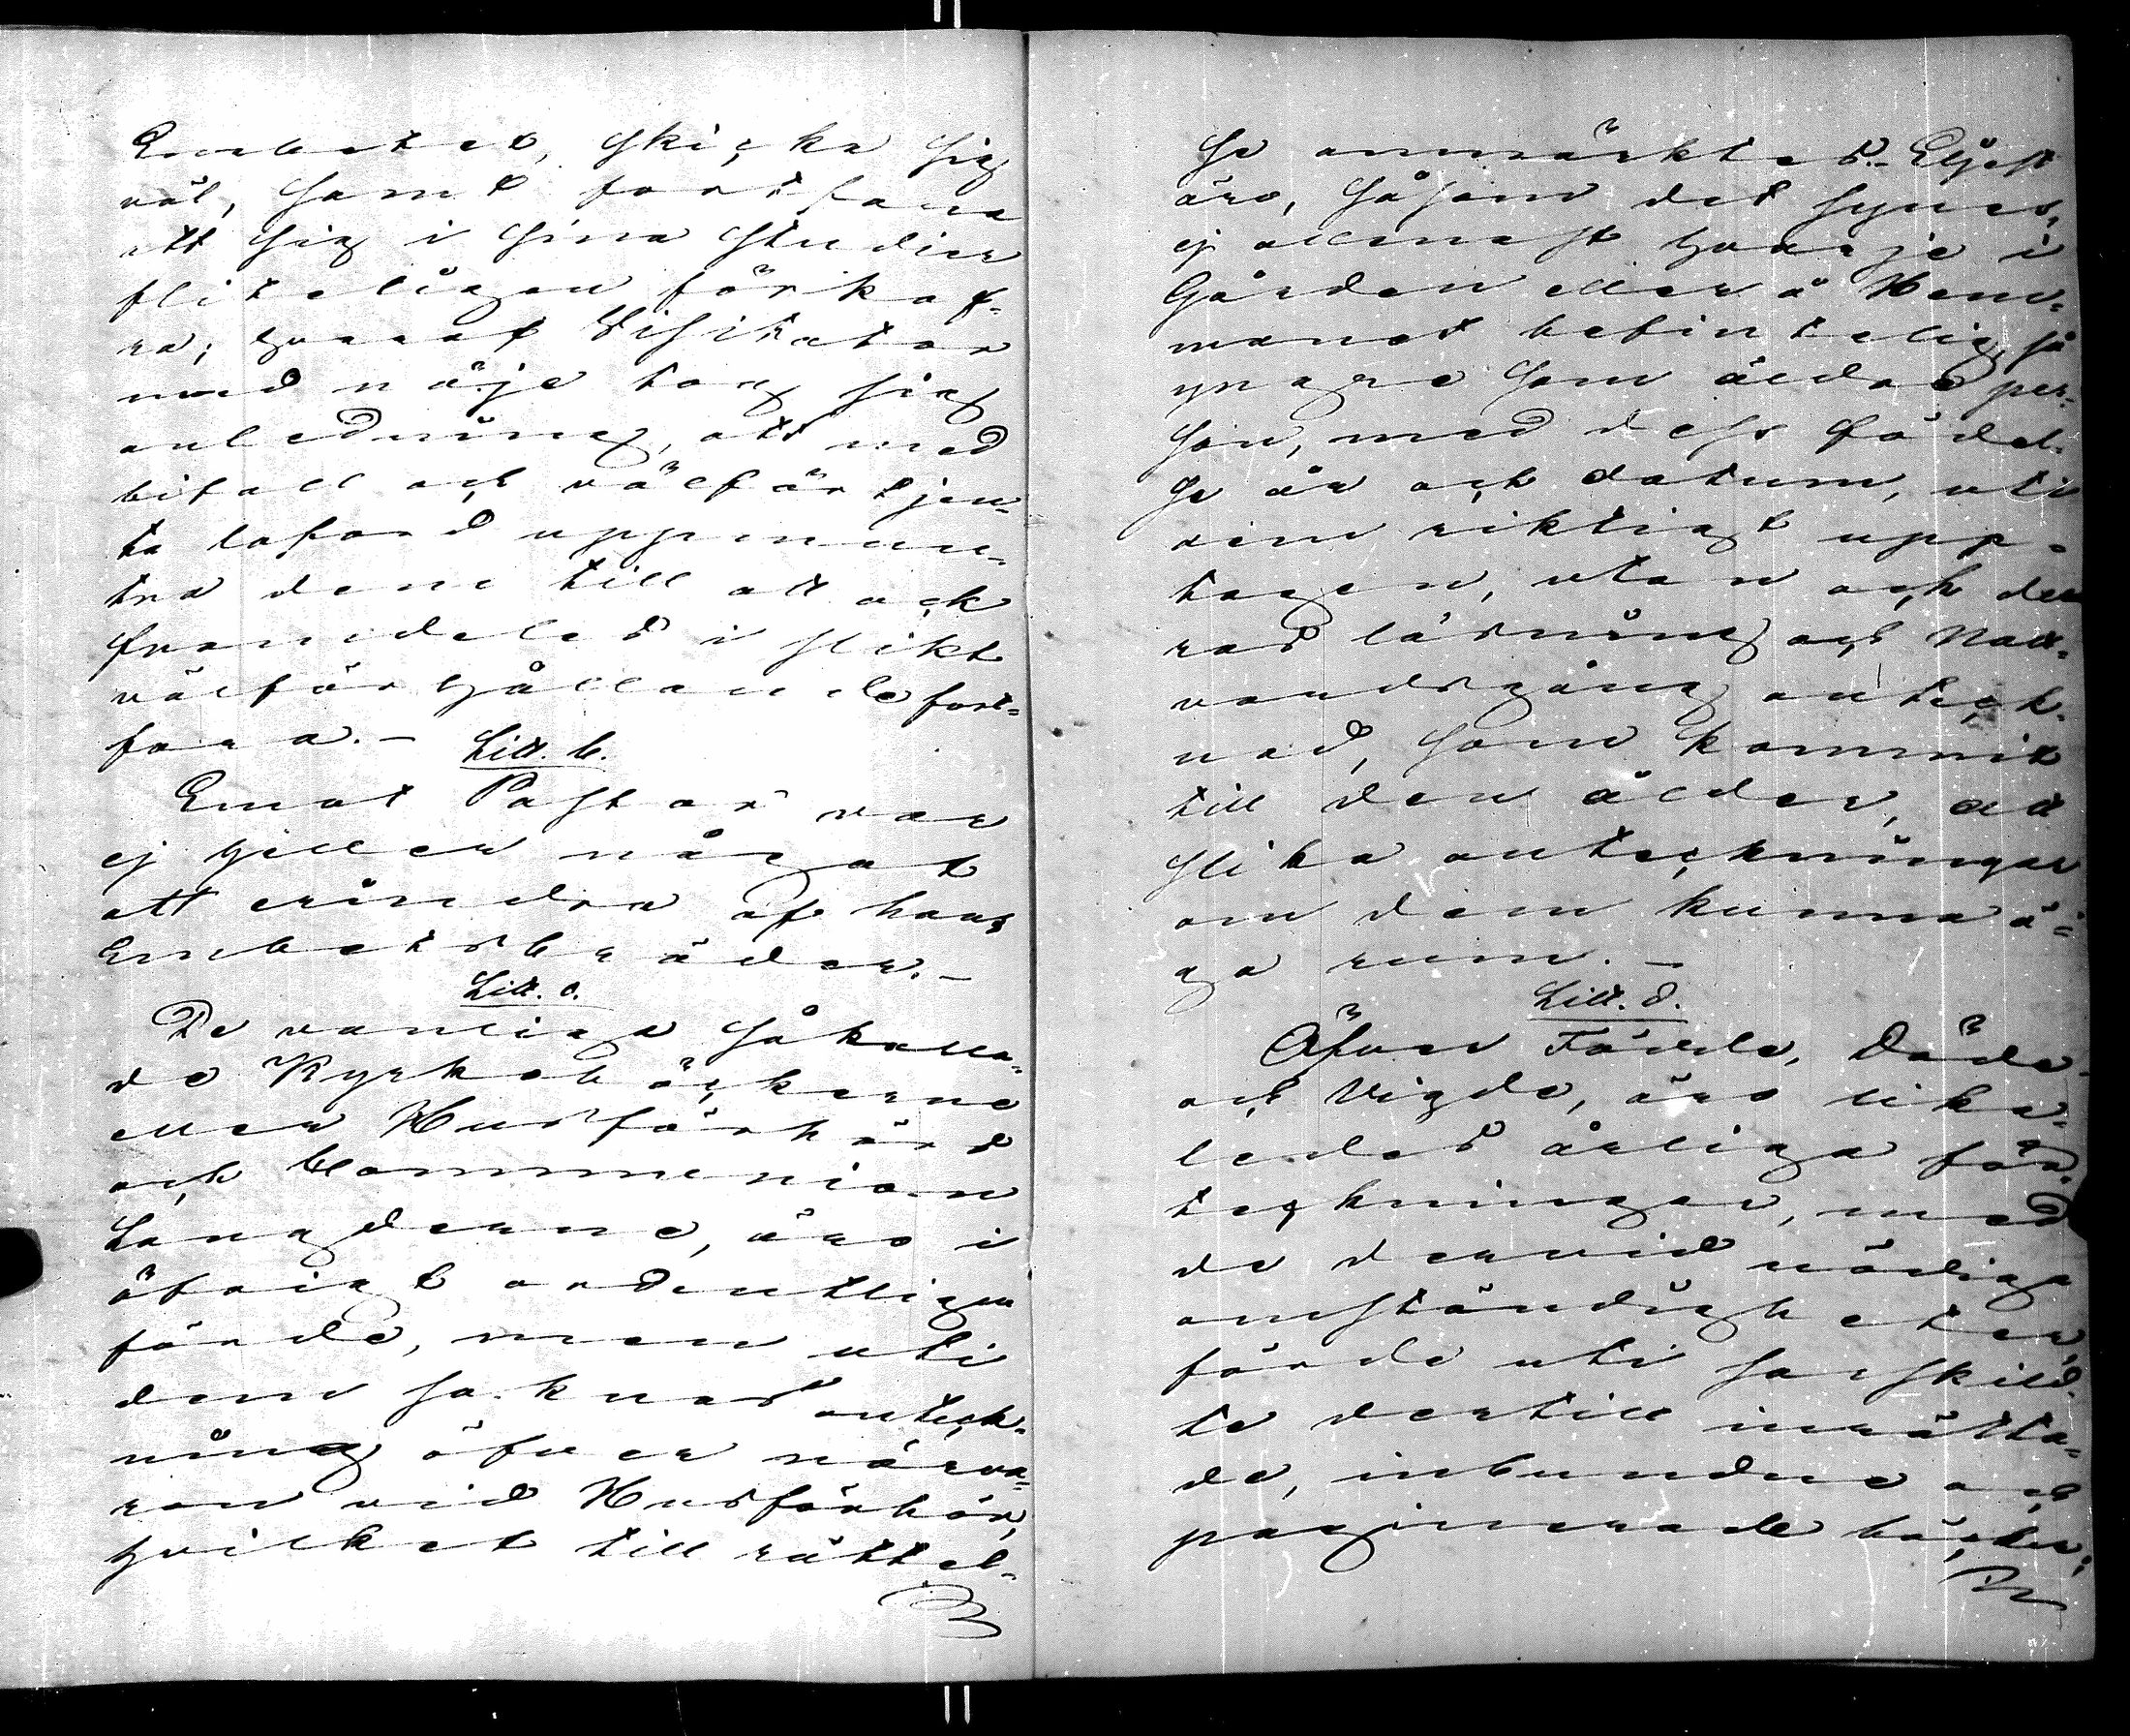 Embetet, skicka sig
väl, samt fortfara
att sig i sina studier
fliteligen förkof-
ra; hvaraf Visitator
med nöje tog sig
anledning, att med
bifall och välförtjen-
ta loford uppmun-
tra dem till att ock
framdeles i slikt
välförhållande fort-
fara.-
Litt. b.
Emot Pastor var
ej heller något
att erindra af hans
Embetsbröder.-
Litt. c.
De vanliga såkalla-
de Kyrkoböckerne
eller Husförhörs
och Communion
Längderne, äro i
öfrigt ordentligen
förde, men uti
dem saknas anteck-
ning öfver närva-
ron vid Husförhör,
hvilket till rättel-
se anmärktes.- Eljest
äro, såsom det synes,
ej allenast hvarje i
Gården eller å Hem-
manet befintelig, så
yngre som äldre per-
son, med dess födel-
se år och datum, uti
dem riktigt upp-
tagen, utan och de-
ras läsning och Natt-
vardsgång anteck-
nad, som kommit
till den ålder, att
slika anteckningar
om dem kunna ä-
ga rum.-
Litt. d.
Öfver Födde, Döde
och Vigde, äro lika-
ledes årliga för-
teckningar, med
de dervid nödiga
omständigheter,
förde uti särskild-
te dertill inrätta-
de, inbundne och
paginerade böcker;